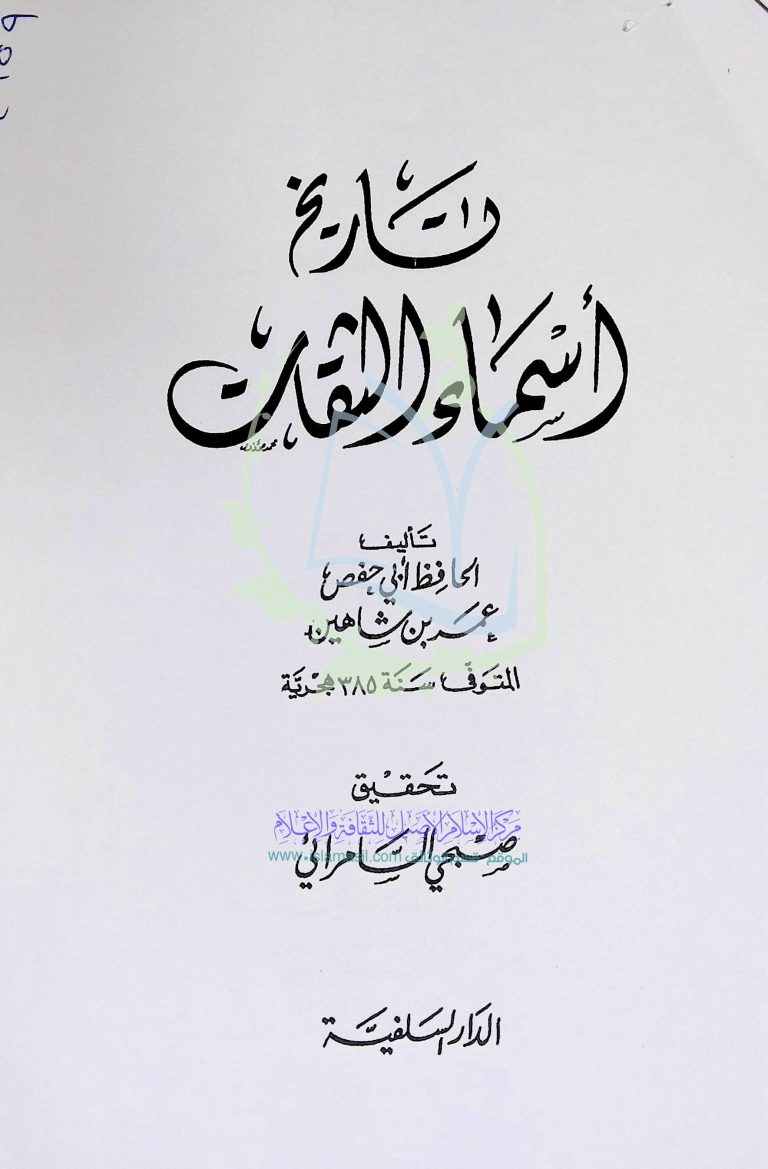 تاريخ
أسماء الثقات
تأليف
الحافظ أبي حفص
عمر بن شاهين
المتوفى سنة ٣٨٥ هجرية
تحقيق
مركز الإسلام الأصيل للثقافة والإعلام
صبحي السامرائي
www.islamasil.com
الدار السلفية